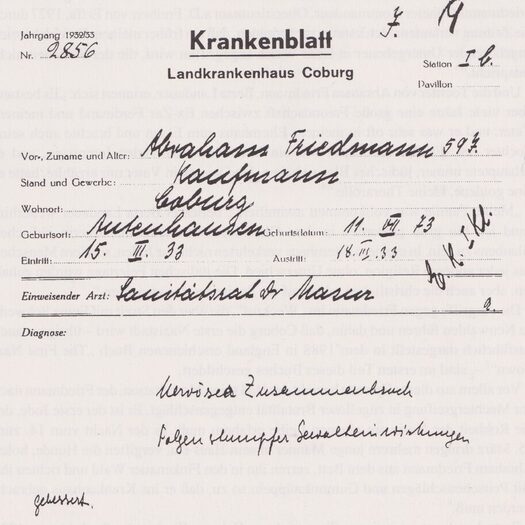 J. 14
Jahrgang 1932/33
Nr. 2856
Krankenblatt
Landkrankenhaus Coburg
Station I b.
Pavillon
Vor-, Zuname und Alter: Abraham Friedmann 59 J.
Stand und Gewerbe: Kaufmann
Wohnort: Coburg
Geburtsort: Autenhausen Geburtsdatum: 11. VII 73
Eintritt: 15. III. 33 Austritt: 18. III. 33
I. Kl.
Einweisender Arzt: Sanitätsrat Dr Masur
Diagnose:
Nervöser Zusammenbruch
Folgen stumpfer Gewalteinwirkungen
gebessert.